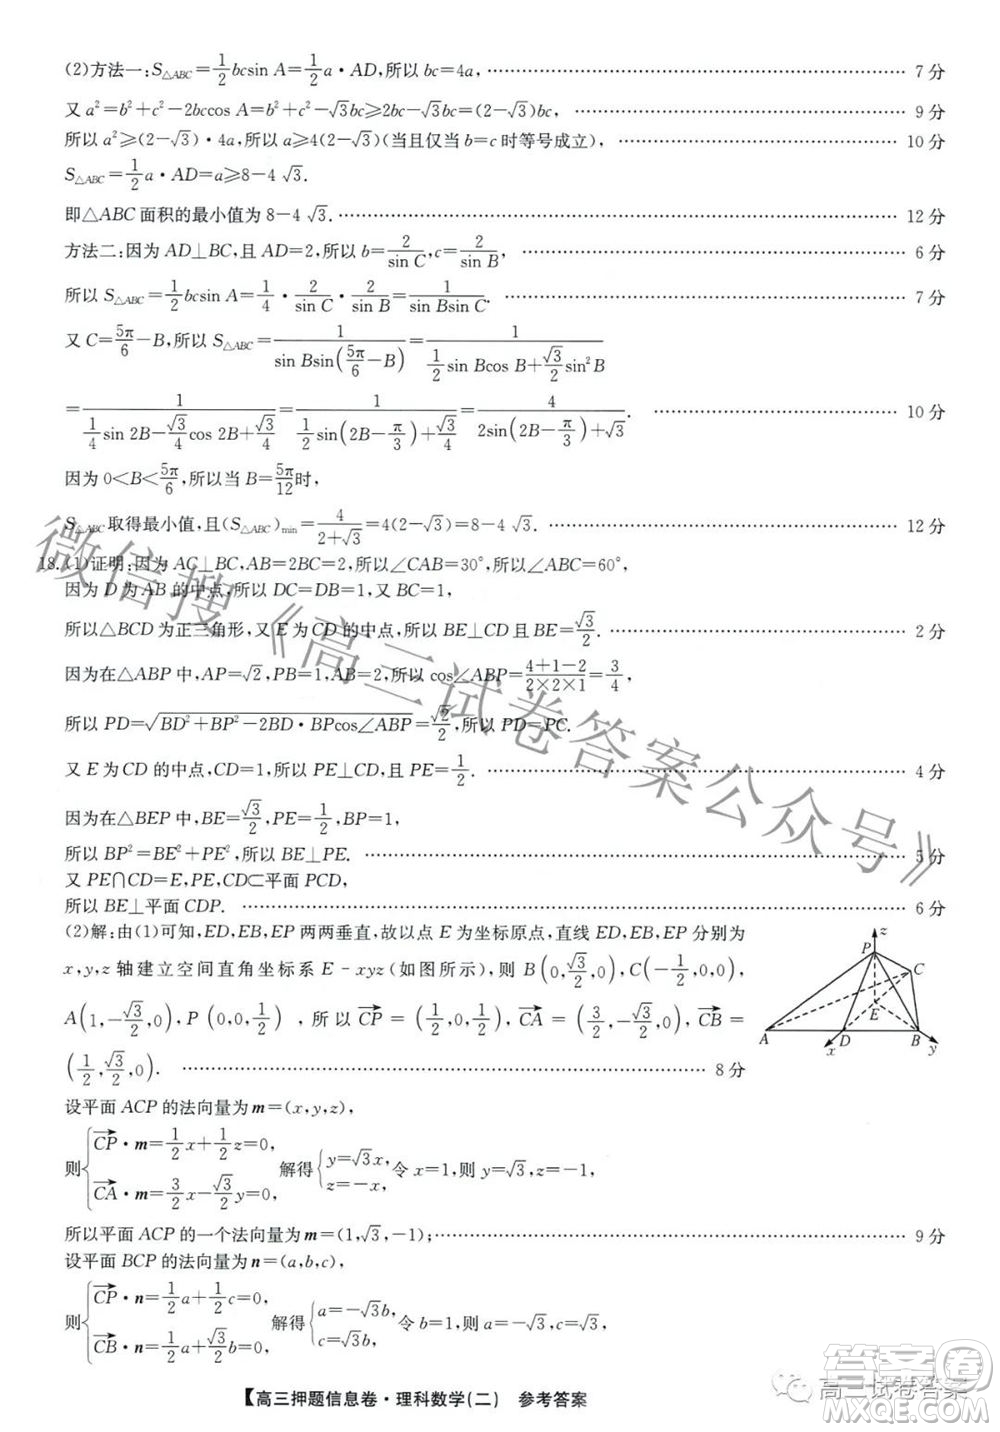 (2)方法一:S△ABC=1/2 bcsin A=1/2 a·AD,所以 bc=4a, 7 分
又 a²=b²+c²-2bccos A=b²+c²-√3bc≥2bc-√3bc=(2-√3)bc, 9 分
所以 a²≥(2-√3)·4a,所以 a≥4(2-√3)(当且仅当 b=c 时等号成立), 10 分
S△ABC=1/2 a·AD=a≥8-4√3.
即△ABC 面积的最小值为 8-4√3. 12 分
方法二:因为 AD⊥BC,且 AD=2,所以 b=2/sin C,c=2/sin B, 6 分
所以 S△ABC=1/2 bcsin A=1/4·2/sin C·2/sin B=1/(sin Bsin C). 7 分
又 C=5π/6-B,所以 S△ABC=1/(sin Bsin(5π/6-B))=1/(1/2 sin Bcos B+√3/2 sin²B)
=1/(1/4 sin 2B-√3/4 cos 2B+√3/4)=1/(1/2 sin(2B-π/3)+√3/4)=4/(2sin(2B-π/3)+√3). 10 分
因为 0<B<5π/6,所以当 B=5π/12时,
S△ABC取得最小值,且(S△ABC)min=4/(2+√3)=4(2-√3)=8-4√3. 12 分
18.(1)证明:因为 AC⊥BC,AB=2BC=2,所以∠CAB=30°,所以∠ABC=60°,
因为 D 为 AB 的中点,所以 DC=DB=1,
所以△BCD 为正三角形,又 E 为 CD 的中点,所以 BE⊥CD 且 BE=√3/2. 2 分
因为在△ABP 中,AP=√2,PB=1,AB=2,所以 cos∠ABP=(4+1-2)/(2×2×1)=3/4,
所以 PD=√(BD²+BP²-2BD·BPcos∠ABP)=√2/2,所以 PD=PC.
又 E 为 CD 的中点,CD=1,所以 PE⊥CD,且 PE=1/2. 4 分
因为在△BEP 中,BE=√3/2,PE=1/2,BP=1,
所以 BP²=BE²+PE²,所以 BE⊥PE. 5 分
又 PE∩CD=E,PE,CD⊂平面 PCD,
所以 BE⊥平面 CDP. 6 分
(2)解:由(1)可知,ED,EB,EP 两两垂直,故以点 E 为坐标原点,直线 ED,EB,EP 分别为
x,y,z 轴建立空间直角坐标系 E-xyz(如图所示),则 B(0,√3/2,0),C(-1/2,0,0),
A(1,-√3/2,0),P(0,0,1/2),所以 CP→=(1/2,0,1/2),CA→=(3/2,-√3/2,0),CB→=
(1/2,√3/2,0). 8 分
z
P
C
E
A
D
B
x
y
设平面 ACP 的法向量为 m=(x,y,z),
则{CP→·m=1/2 x+1/2 z=0, CA→·m=3/2 x-√3/2 y=0, 解得{y=√3x, z=-x, 令 x=1,则 y=√3,z=-1,
所以平面 ACP 的一个法向量为 m=(1,√3,-1); 9 分
设平面 BCP 的法向量为 n=(a,b,c),
则{CP→·n=1/2 a+1/2 c=0, CB→·n=1/2 a+√3/2 b=0, 解得{a=-√3b, c=√3b, 令 b=1,则 a=-√3,c=√3,
【高三押题信息卷·理科数学(二) 参考答案】
微信搜《高三试卷答案公众号》
高三试卷答案